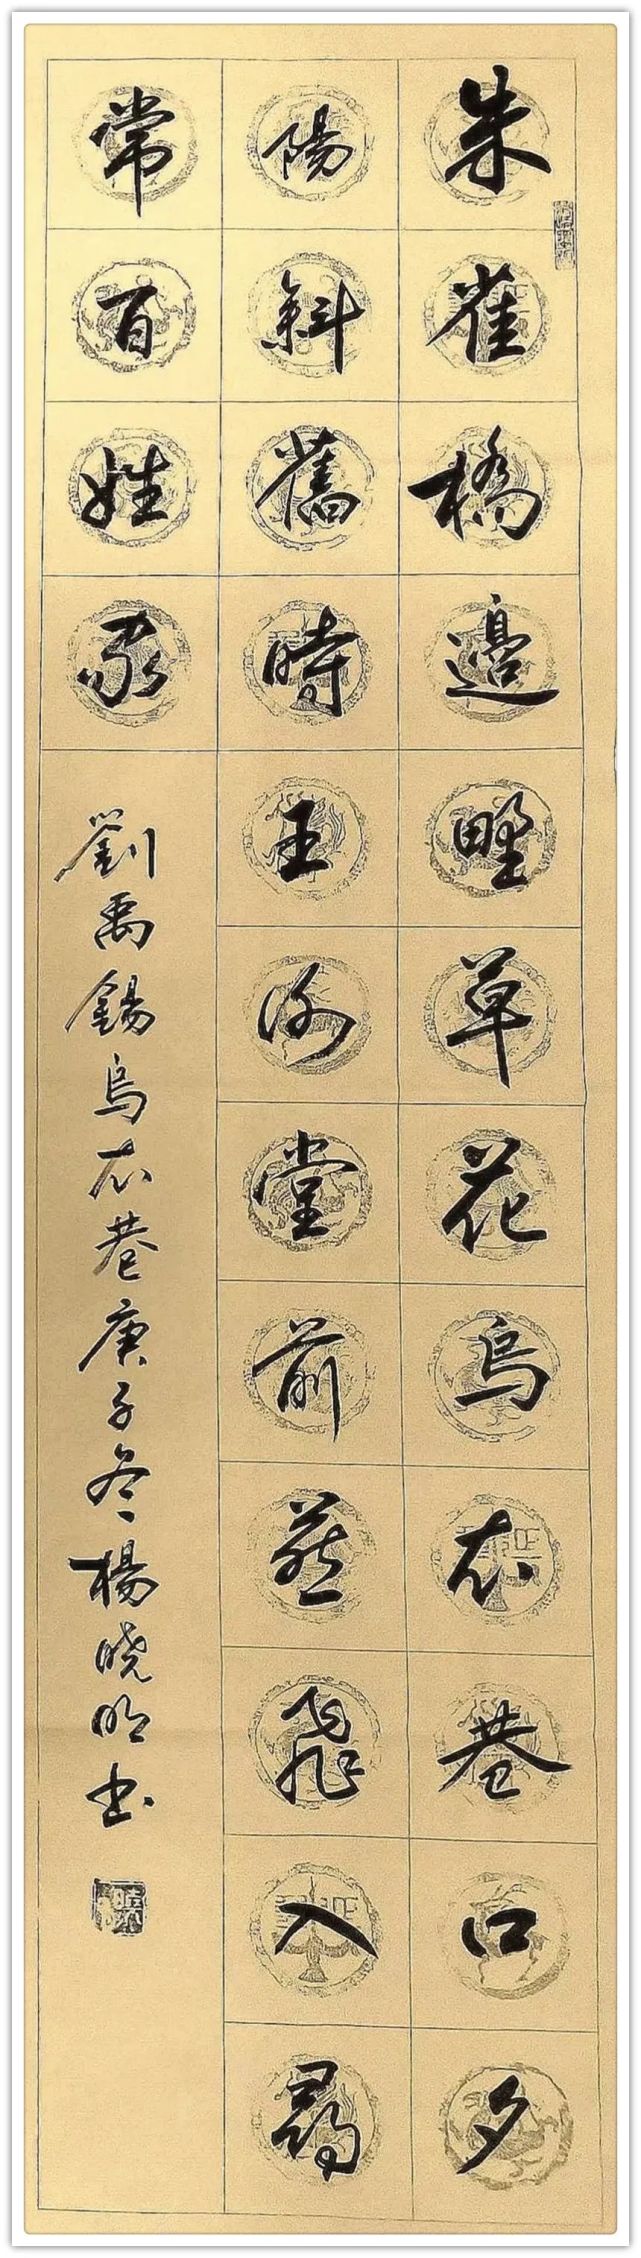 朱雀橋邊野草花烏衣巷口夕
陽斜舊時王謝堂前燕飛入尋
常百姓家
劉禹錫烏衣巷庚子冬楊曉明书